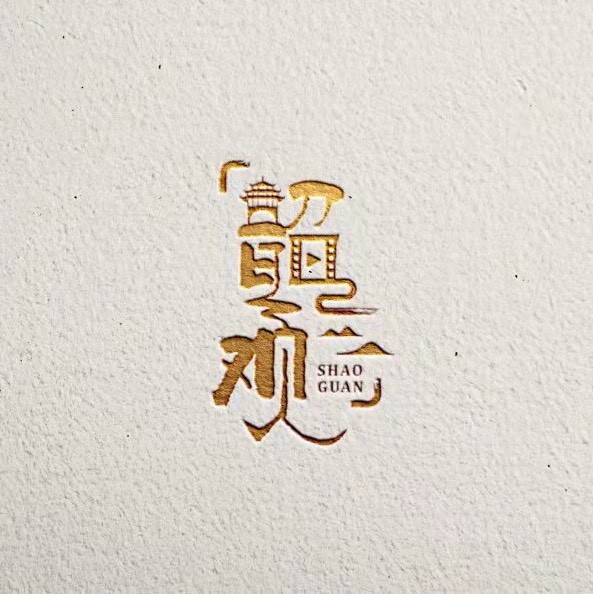 韶
观
SHAO
GUAN